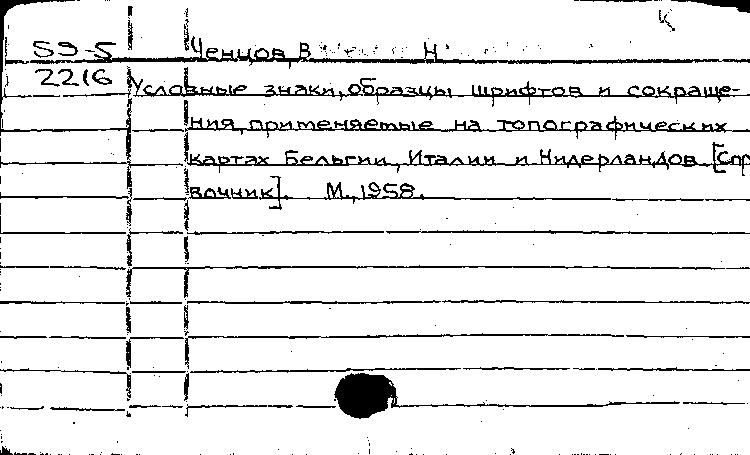 К
59-5 Ченцов, В Н
2216 Условные знаки, образцы шрифтов и сокраще-
ния, применяемые на топографических
картах Бельгии, Италии и Нидерландов. [Спр
вочник]. М., 1958.